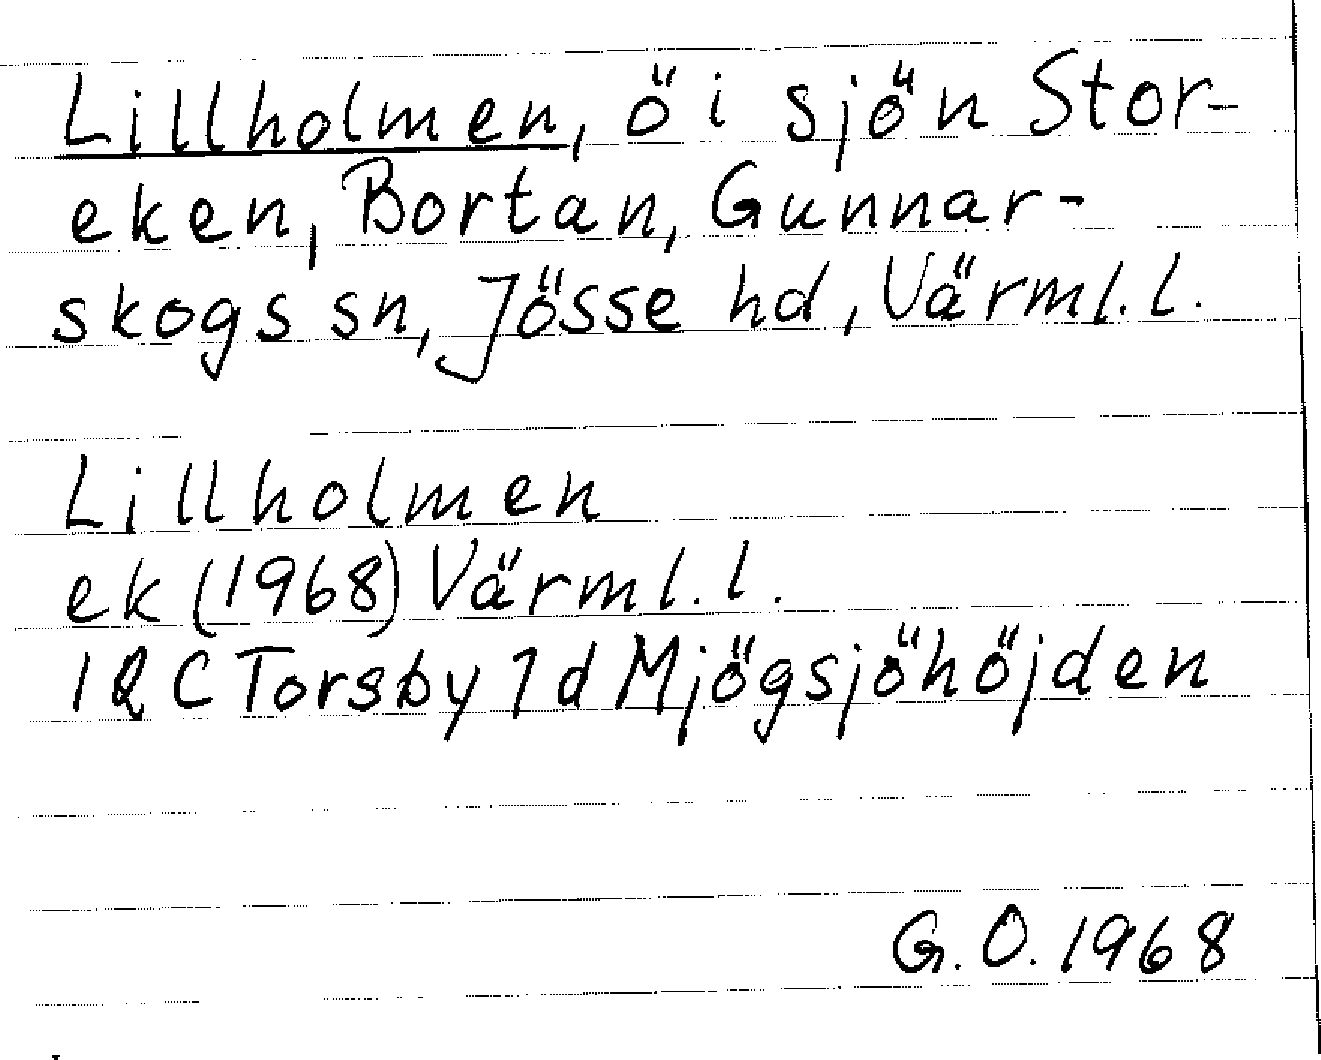 Lillholmen, ö i sjön Stor-
eken, Bortan, Gunnar-
skogs sn, Jösse hd, Värml. l.
Lillholmen
ek (1968) Värml. l.
12 C Torsby 7 d Mjögsjöhöjden
G. O. 1968